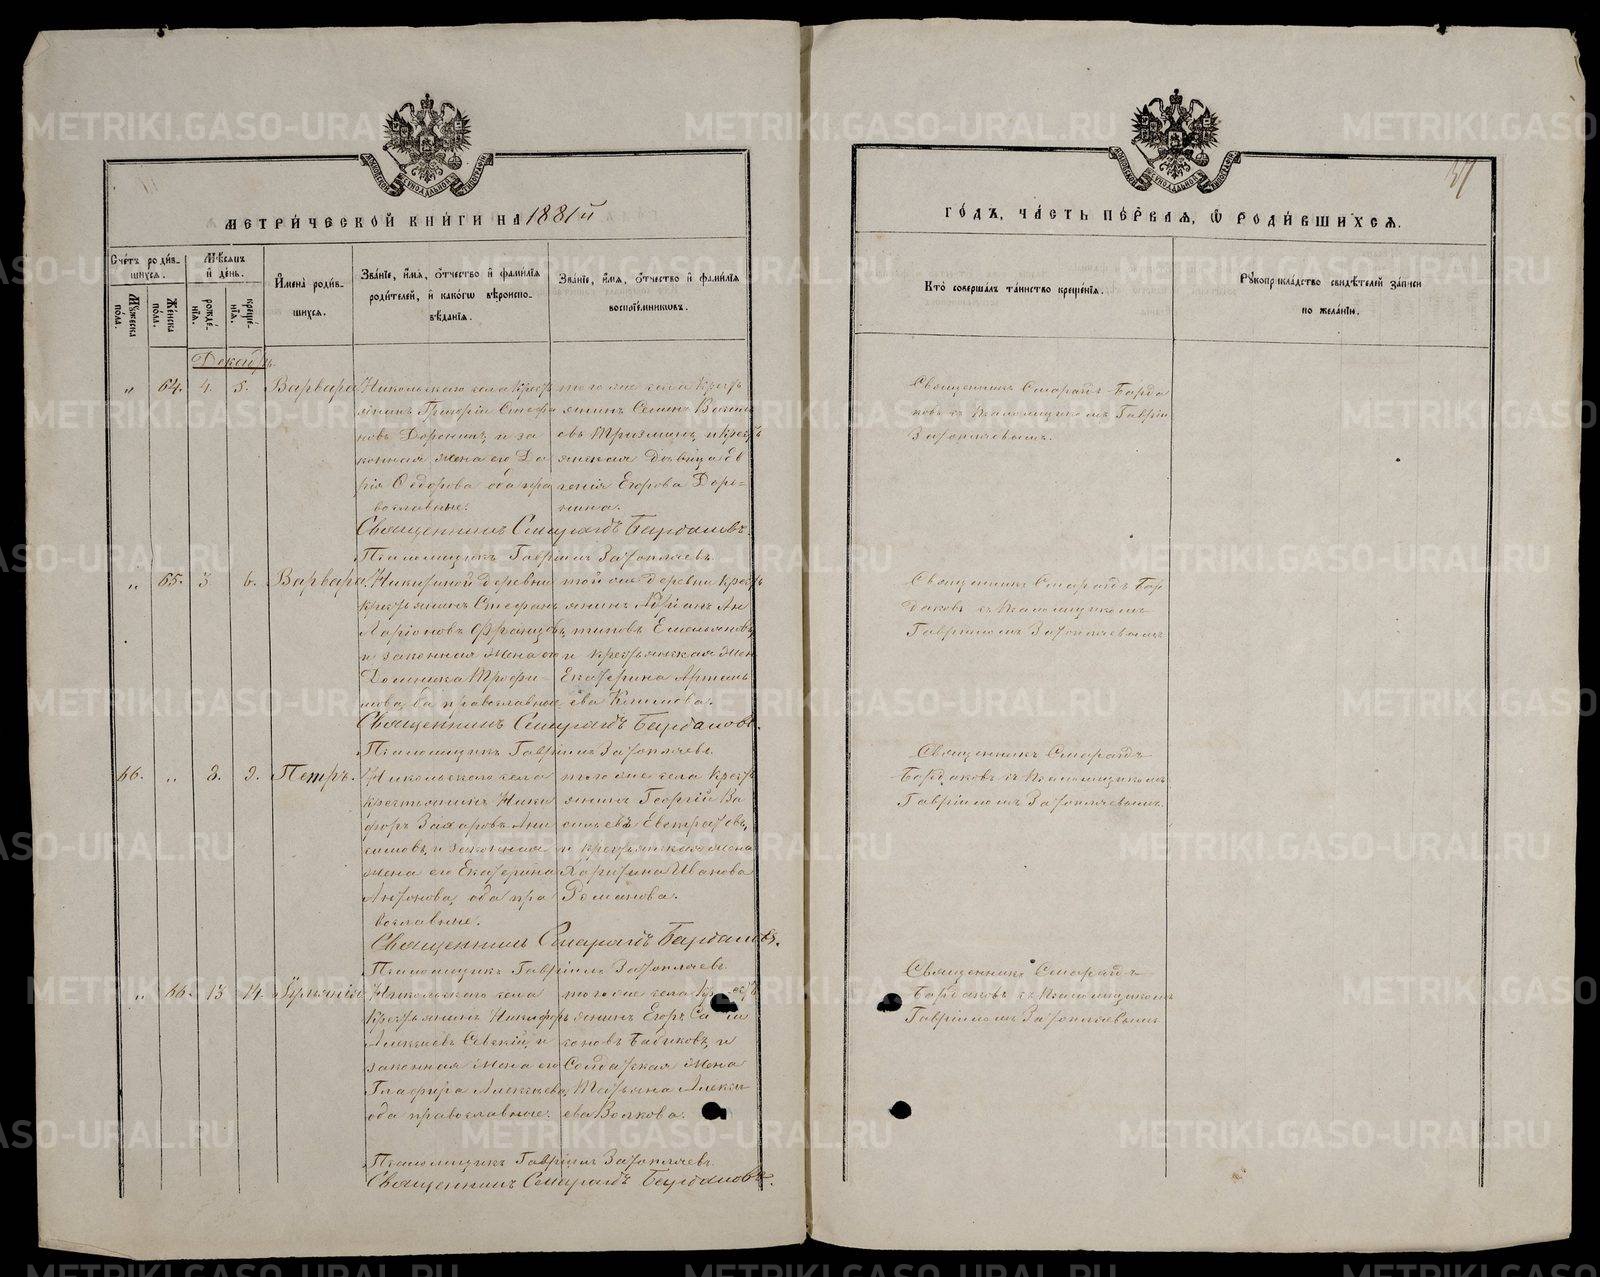 МЕТРИ́ЧЕСКОЙ КНИ́ГИ НА 1881й
Счетъ роди́вшихся.
Му́жеска по́ла.
Же́нска по́ла.
Мѣ́сяцъ и҆ де́нь.
рожде́нїя.
креще́нїя.
И҆мена̀ роди́вшихся.
Зва́нїе, и҆́мя, ѻ҆́тчество и҆ фами́лїя роди́телей, и҆ како́гѡ вѣроисповѣ́данїя.
Зва́нїе, и҆́мя, ѻ҆́тчество и҆ фами́лїя воспрїе́мникѡвъ.
Декабрь.
„ 64. 4. 5. Варвара
Никольскаго села Крест
янинъ Григорій Стефа
новъ Доронинъ, и за
конная жена его Да
рія Ѳедорова оба пра
вославные.
того же села Крестъ
янинъ Семенъ
овъ и Крестъ
янская дѣвица Ев
генія Егорова Доро=
нина.
Священникъ Смарагдъ Бардаковъ.
Псаломщикъ Гавріилъ Затопляевъ
„ 65. 3 6. Варвара.
Никитиной деревни
крестьянинъ Стефанъ
Ларіоновъ
и законная жена его
Домника Трофи-
мова, оба православные
той же деревни Крестъ
янинъ Ан
типовъ Емельяновъ,
и крестьянская жен
Екатерина Артемь
ева
Священникъ Смарагдъ Бардаковъ.
Псаломщикъ Гавріилъ Затопляевъ.
66. „ 3. 9. Петръ.
Никольскаго села
крестьянинъ Ники
форъ Захаровъ Ани
симовъ, и законная
жена его Екатерина
Антонова, оба пра
вославные.
того же села Крестъ
янинъ Георгій Ва
сильевъ Евстратовъ,
и крестьянская жена
Харитина Иванова
Романова.
Священникъ Смарагдъ Бардаковъ.
Псаломщикъ Гавріилъ Затопляевъ
„ 66. 13 14.
Никольскаго села
Крестьянинъ Никифоръ
Алексѣевъ Севскій, и
законная жена его
Глафира Алексѣева,
оба православные.
того же села Крест
янинъ Егоръ
Бабиковъ, и
Солдатская жена
Татьяна Алексѣ
ева Волкова.
Псаломщикъ Гавріилъ Затопляевъ.
Священникъ Смарагдъ Бардаковъ.
ГО́ДЪ, ЧА́СТЬ ПЕ́РВАЯ, Ѡ҆ РОДИ́ВШИХСЯ.
Кто̀ соверша́лъ та́инство креще́нїя.
Рꙋкоприкла́дство свидѣ́телей за́писи по жела́нїю.
Священникъ Смарагдъ Барда
ковъ съ Псаломщикомъ Гаврііл
Затопляевымъ.
Священникъ Смарагдъ Бар
даковъ съ Псаломщикомъ
Гавріиломъ Затопляевымъ
Священникъ Смарагдъ
Бардаковъ съ Псаломщикомъ
Гавріиломъ Затопляевымъ.
Священникъ Смарагдъ
Бардаковъ съ Псаломщикомъ
Гавріиломъ Затопляевымъ
METRIKI.GASO-URAL.RU